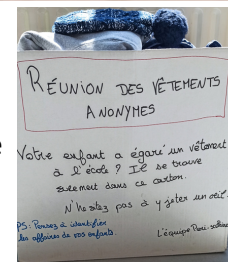 RÉUNION DES VÊTEMENTS
ANONYMES
Votre enfant a égaré un vêtement
à l'école ? Il se trouve
sûrement dans ce carton.
N'hésitez pas à y jeter un œil.
PS: Pensez à identifier
les affaires de vos enfants.
L'équipe Péri-scolaire